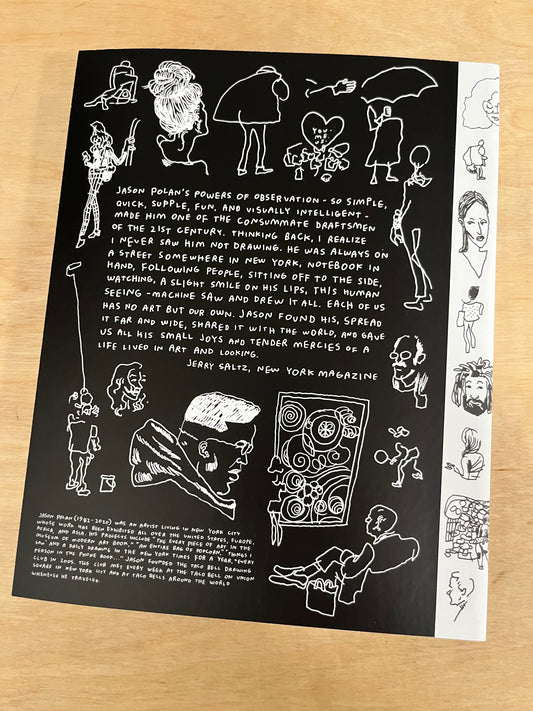 YOU +
ME
JASON POLAN'S POWERS OF OBSERVATION - SO SIMPLE,
QUICK, SUPPLE, FUN, AND VISUALLY INTELLIGENT -
MADE HIM ONE OF THE CONSUMMATE DRAFTSMEN
OF THE 21ST CENTURY. THINKING BACK, I REALIZE
I NEVER SAW HIM NOT DRAWING. HE WAS ALWAYS ON
A STREET SOMEWHERE IN NEW YORK, NOTEBOOK IN
HAND, FOLLOWING PEOPLE, SITTING OFF TO THE SIDE,
WATCHING, A SLIGHT SMILE ON HIS LIPS, THIS HUMAN
SEEING-MACHINE SAW AND DREW IT ALL. EACH OF US
HAS NO ART BUT OUR OWN. JASON FOUND HIS, SPREAD
IT FAR AND WIDE, SHARED IT WITH THE WORLD, AND GAVE
US ALL HIS SMALL JOYS AND TENDER MERCIES OF A
LIFE LIVED IN ART AND LOOKING.
JERRY SALTZ, NEW YORK MAGAZINE
JASON POLAN (1982-2020) WAS AN ARTIST LIVING IN NEW YORK CITY
WHOSE WORK HAS BEEN EXHIBITED ALL OVER THE UNITED STATES, EUROPE,
AFRICA, AND ASIA. HIS PROJECTS INCLUDE "THE EVERY PIECE OF ART IN THE
MUSEUM OF MODERN ART BOOK," "AN ENTIRE BAG OF POPCORN," "THINGS I
SAW" AND A DAILY DRAWING IN THE NEW YORK TIMES FOR A YEAR, "EVERY
PERSON IN THE PHONE BOOK..." JASON FOUNDED THE TACO BELL DRAWING
CLUB IN 2005. THE CLUB MET EVERY WEEK AT THE TACO BELL ON UNION
SQUARE IN NEW YORK CITY AND AT TACO BELLS AROUND THE WORLD
WHENEVER HE TRAVELED.